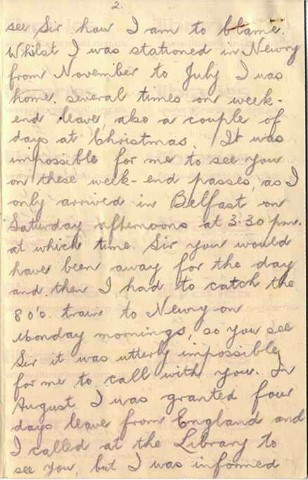 2.
see Sir how I am to blame.
Whilst I was stationed in Newry
from November to July I was
home several times on week-
end leave also a couple of
days at Christmas. It was
impossible for me to see your
on these week-end passes, as I
only arrived in Belfast on
Saturday afternoons at 3.30 pm.
at which time Sir your would
have been away for the day
and then I had to catch the
8 o'c. train to Newry on
Monday mornings, so you see
Sir it was utterly impossible
for me to call with your. In
August I was granted four
days leave from England and
I called at the Library to
see You, but I was informed